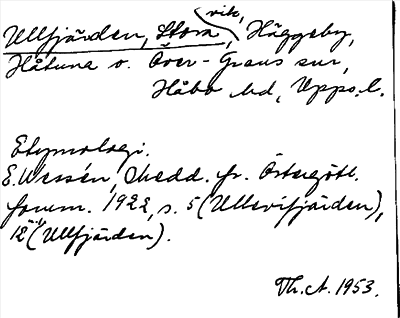 vik,
Ullfjärden, Stora, Häggeby,
Håtuna o. Över-Grans snr,
Håbo hd, Upps. l.
Etymologi.
E. Wessén, Medd. fr. Östergötl.
fornm. 1922, s. 5 (Ullevifjärden),
12 (Ullfjärden).
Th. A. 1953.